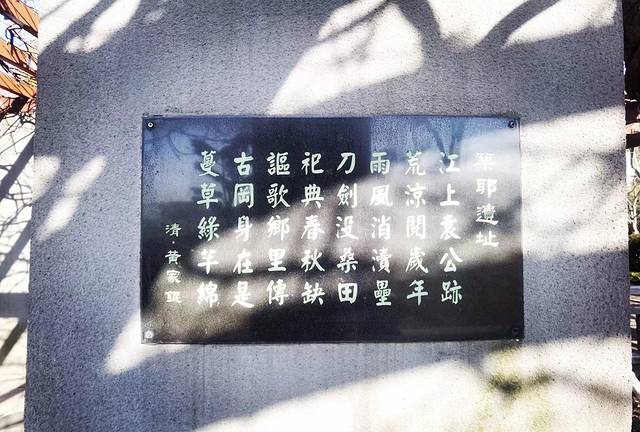 耶遺址
江上袁公跡
荒涼閱歲年
雨風消瀆壘
刀劍没桑田
祀典春秋缺
謳歌鄉里傳
古岡身在是
蔓草綠芊綿
清·黃家